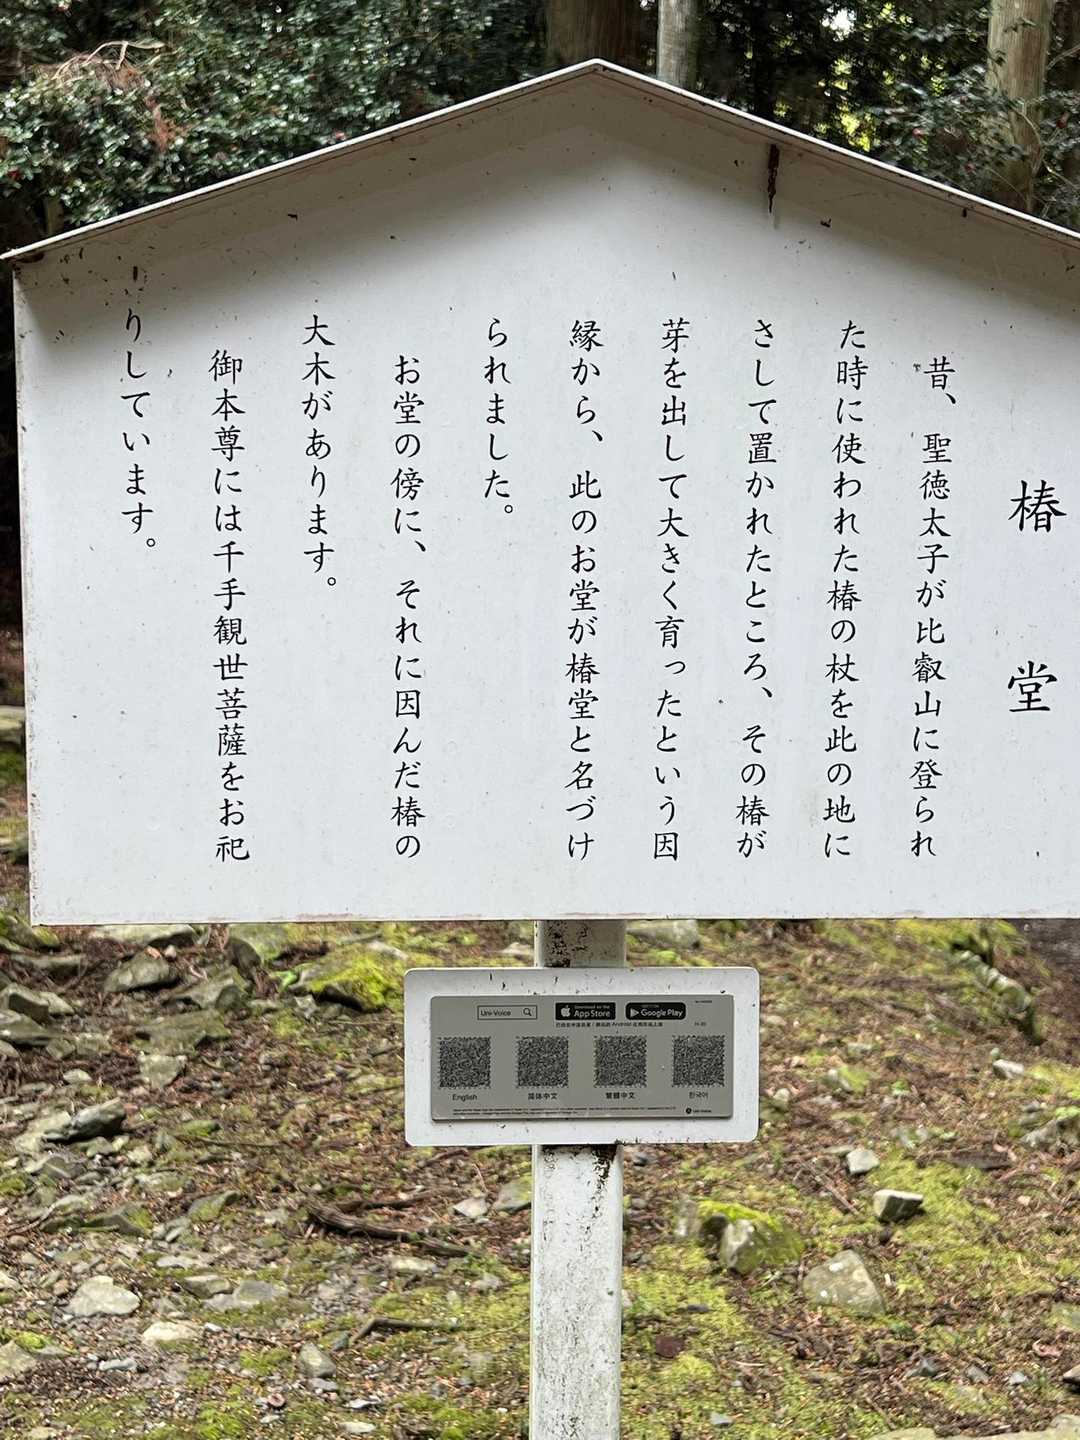 椿堂
昔、聖徳太子が比叡山に登られ
た時に使われた椿の杖を此の地に
さして置かれたところ、その椿が
芽を出して大きく育ったという因
縁から、此のお堂が椿堂と名づけ
られました。
お堂の傍に、それに因んだ椿の
大木があります。
御本尊には千手観世菩薩をお祀
りしています。
Uni-Voice
Download on the
App Store
Google Play
English
简体中文
繁體中文
한국어